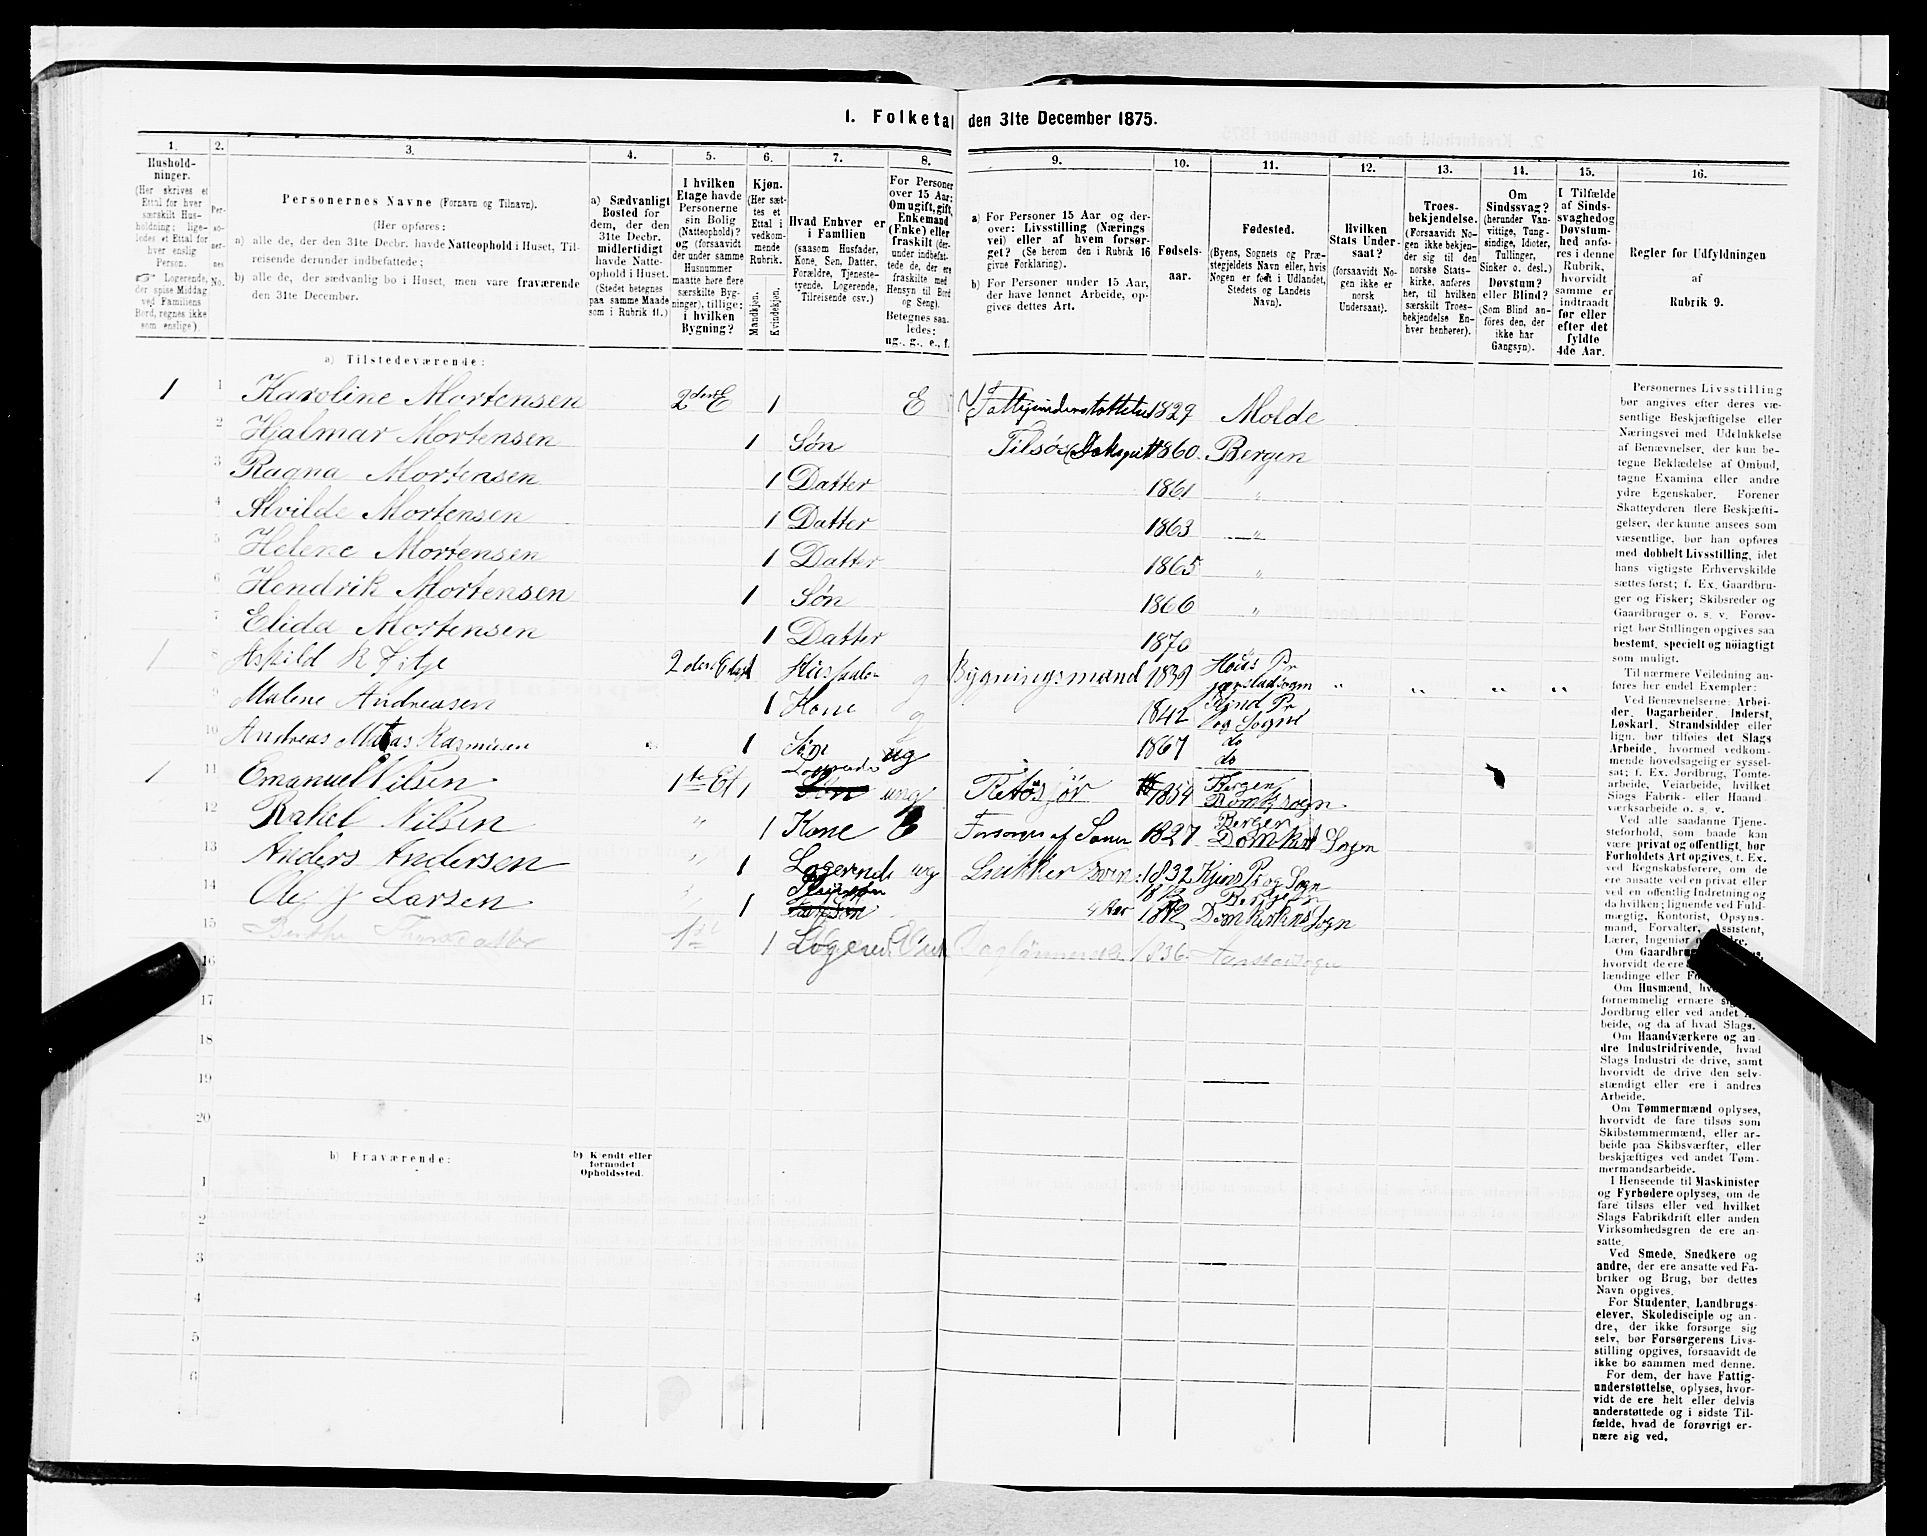 1. Folketal den 31te December 1875.
1.
Husholdninger.
(Her skrives et Ettal for hver særskilt Husholdning; ligeledes et Ettal for hver enslig Person.
☞ Logerende, der spise Middag ved Familiens Bord, regnes ikke som enslige).
2.
Personernes No.
3.
Personernes Navne (Fornavn og Tilnavn).
(Her opføres:
a) alle de, der den 31te Decbr. havde Natteophold i Huset, Tilreisende derunder indbefattede;
b) alle de, der sædvanlig bo i Huset, men vare fraværende den 31te December.
4.
a) Sædvanligt Bosted for dem, der den 31te Decbr. midlertidigt havde Natteophold i Huset.
(Stedet betegnes paa samme Maade som i Rubrik 11.)
5.
I hvilken Etage havde Personerne sin Bolig (Natteophold)? og (forsaavidt der under samme Husnummer maatte høre flere særskilte Bygninger), tillige: i hvilken Bygning?
6.
Kjøn.
(Her sættes et Ettal i vedkommende Rubrik.
Mandkjøn.
Kvindekjøn.
7.
Hvad Enhver er i Familien
(saasom Husfader, Kone, Søn, Datter, Forældre, Tjenestetyende, Logerende, Tilreisende osv.)
8.
For Personer over 15 Aar: Om ugift, gift, Enkemand (Enke) eller fraskilt (derunder indbefattede de, der ere fraskilte med Hensyn til Bord og Seng).
Betegnes saaledes: ug., g., e., f.
9.
a) For Personer 15 Aar og derover: Livsstilling (Næringsvei) eller af hvem forsørget? (Se herom den i Rubrik 16 givne Forklaring).
b) For Personer under 15 Aar, der have lønnet Arbeide, opgives dettes Art.
10.
Fødselsaar.
11.
Fødested.
(Byens, Sognets og Præstegjeldets Navn eller, hvis Nogen er født i Udlandet, Stedets og Landets Navn).
12.
Hvilken Stats Undersaat?
(forsaavidt Nogen ikke er norsk Undersaat).
13.
Troesbekjendelse.
(Forsaavidt Nogen ikke bekjender sig til den norske Statskirke, anføres her, til hvilken særskilt Troesbekjendelse Enhver henhører).
14.
Om Sindssvag? (herunder Vanvittige, Tungsindige, Idioter, Tullinger, Sinker o. desl.) Døvstum? eller Blind? (Som Blind anføres den, der ikke har Gangsyn).
15.
I Tilfælde af Sindssvaghed og Døvstumhed anføres i denne Rubrik, hvorvidt samme er indtraadt før eller efter det fyldte 4de Aar.
16.
Regler for Udfyldningen af Rubrik 9.
a) Tilstedeværende:
1 1 Karoline Mortensen 2den E 1 E Fattigunderstøttelse 1829 Molde
2 Hjalmar Mortensen 1 Søn Tilsøs 1860 Bergen
3 Ragna Mortensen 1 Datter 1861 "
4 Alvilde Mortensen 1 Datter 1863 "
5 Helene Mortensen 1 Datter 1865 "
6 Hendrik Mortensen 1 Søn 1866 "
7 Elida Mortensen 1 Datter 1870
1 8 Askild R Fitje 2den Etage 1 Husfader g Bygningsmand 1839 Pr " " " "
9 Malene Andreasen 1 Kone g 1842 Pr og Sogne
10 Andreas Rasmusen 1 Søn ug 1867 do do
1 11 Emanuel Nilsen 1te Et 1 Logerende ung 1854 Bergen
12 Rakel Nilsen " 1 Kone E Forsørges af Sønner 1827 Bergen Domkirk Sogn
13 Anders Andersen " 1 Logerende ug 1832 Pr og Sogn
14 Ole J Larsen " 1 4 Aar 1872 Bergen Domkirkens Sogn
15 1ste 1 Logerende Enke 1836
16
17
18
19
20
b) Fraværende:
b) Kjendt eller formodet Opholdssted.
1
2
3
4
5
6
Personernes Livsstilling bør angives efter deres væsentlige Beskjæftigelse eller Næringsvei med Udelukkelse af Benævnelser, der kun betegne Beklædelse af Ombud, tagne Examina eller andre ydre Egenskaber. Forener Skatteyderen flere Beskjæftigelser, der kunne ansees som væsentlige, bør han opføres med dobbelt Livsstilling, idet hans vigtigste Erhvervskilde sættes først; f. Ex. Gaardbruger og Fisker; Skibsreder og Gaardbruger o. s. v. Forøvrigt bør Stillingen opgives saa bestemt, specielt og nøiagtigt som muligt.
Til nærmere Veiledning anføres her endel Exempler:
Ved Benævnelserne: Arbeider, Dagarbeider, Inderst, Løskarl, Strandsidder eller lign. bør tilføies det Slags Arbeide, hvormed vedkommende hovedsagelig er sysselsat; f. Ex. Jordbrug, Tomtearbeide, Veiarbeide, hvilket Slags Fabrik- eller Haandværksarbeide o. s. v.
Ved alle saadanne Tjenesteforhold, som baade kan være privat og offentligt, bør Forholdets Art opgives, t. Ex. ved Regnskabsførere, om de ere ansatte ved en privat eller ved en offentlig Indretning og da hvilken; lignende ved Fuldmægtig, Kontorist, Opsynsmand, Forvalter, Assistent, Lærer, Ingeniør og andre.
Om Husmænd, fornemmelig ernære sig Jordbrug eller ved andet Arbeide, og da af hvad Slags.
Om Haandværkere og andre Industridrivende, hvad Slags Industri de drive, samt hvorvidt de drive den selvstændigt eller ere i andres Arbeide.
Om Tømmermænd oplyses, hvorvidt de fare tilsøs som Skibstømmermænd, eller arbeide paa Skibsværfter, eller beskjæftiges ved andet Tømmermandsarbeide.
I Henseende til Maskinister og Fyrbødere oplyses, om de fare tilsøs eller ved hvilket Slags Fabrikdrift eller anden Virksomhedsgren de ere ansatte.
Ved Smede, Snedkere og andre, der ere ansatte ved Fabriker og Brug, bør dettes Navn opgives.
For Studenter, Landbrugselever, Skoledisciple og andre, der ikke forsørge sig selv, bør Forsørgerens Livsstilling opgives, forsaavidt de ikke bo sammen med denne.
For dem, der have Fattigunderstøttelse, oplyses, hvorvidt de ere helt eller delvis understøttede og i sidste Tilfælde, hvad de forøvrigt ernære sig ved.